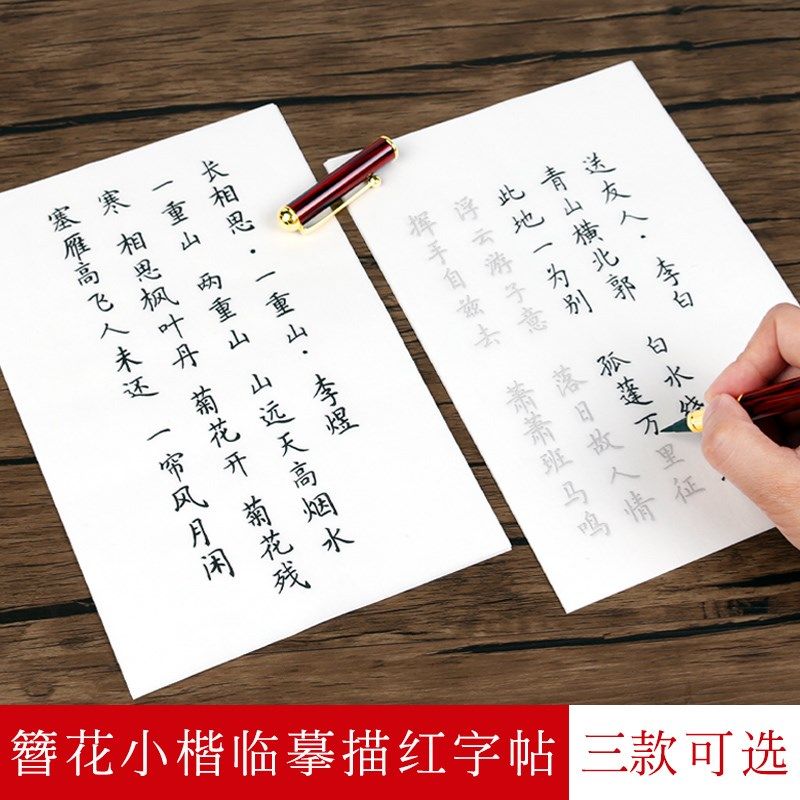 长相思·一重山·李煜
一重山 两重山 山远天高烟水
寒 相思枫叶丹 菊花开 菊花残
塞雁高飞人未还 一帘风月闲
送友人·李白
青山横北郭 白水
此地一为别 孤蓬万里征
浮云游子意 落日故人情
挥手自兹去 萧萧班马鸣
簪花小楷临摹描红字帖 三款可选